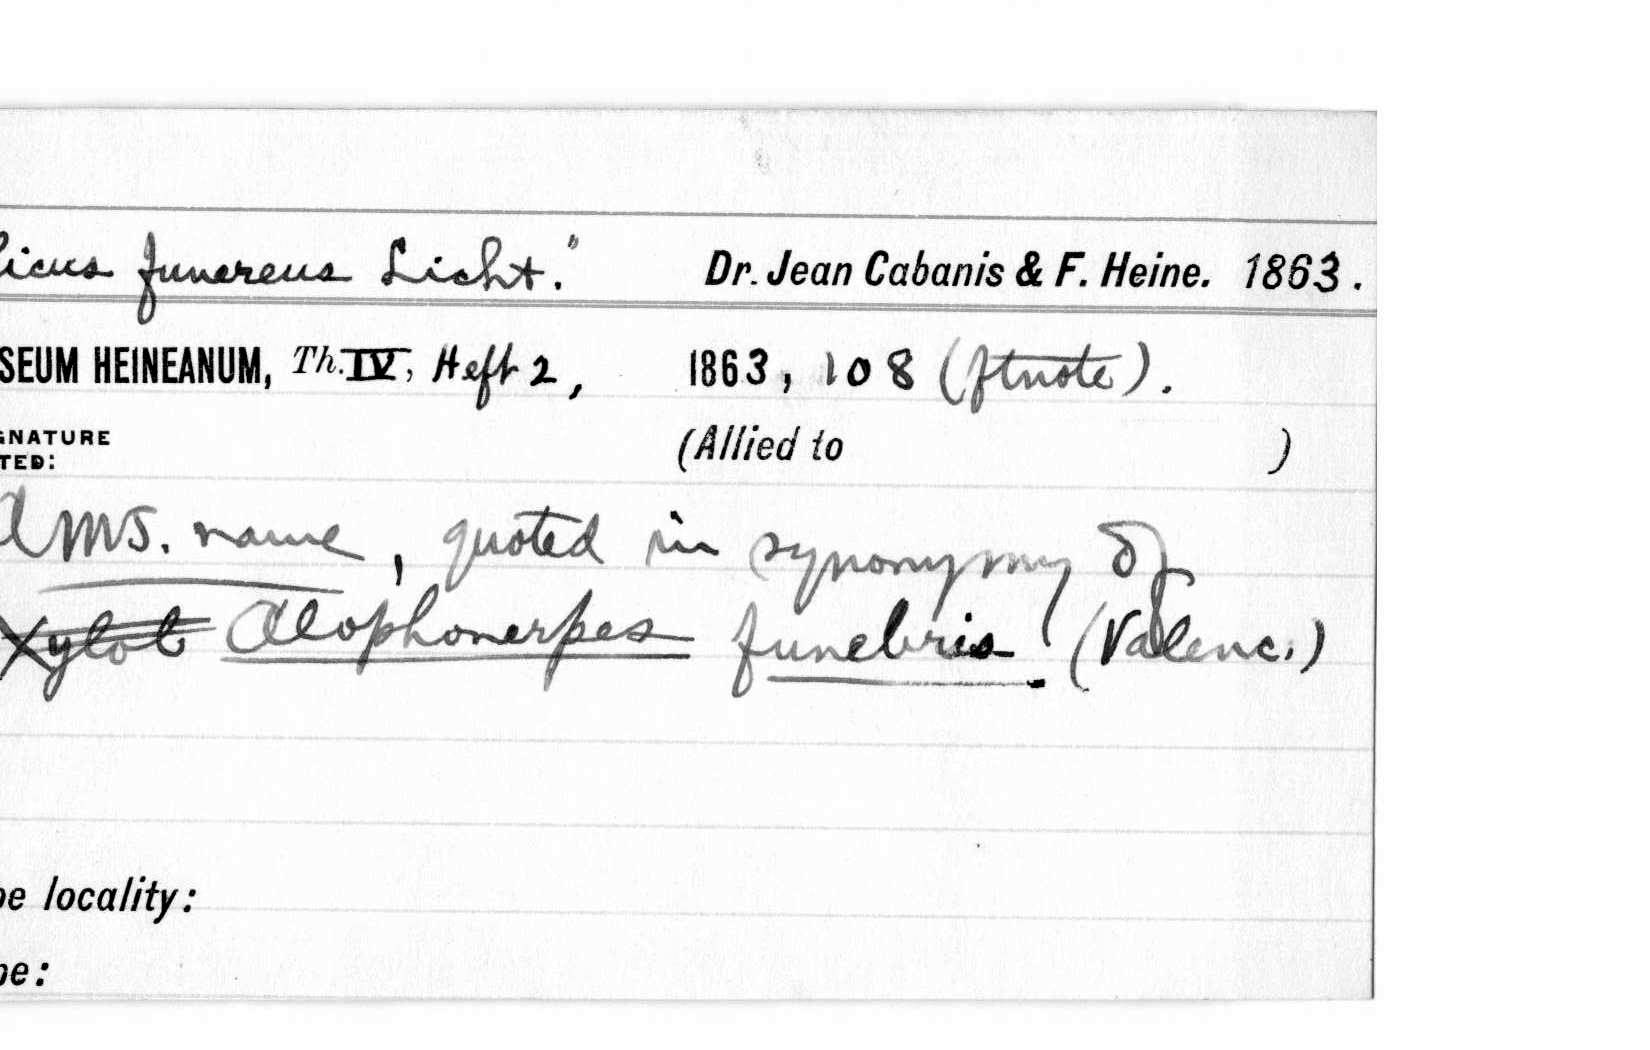 icus funereus Licht." Dr. Jean Cabanis & F. Heine. 1863.
SEUM HEINEANUM, Th. IV, Heft 2, 1863, 108 (ftnote).
GNATURE (Allied to )
TED:
A MS. name, quoted in synonymy of
Xylot Alophonerpes funebris (Valenc.)
pe locality:
pe: